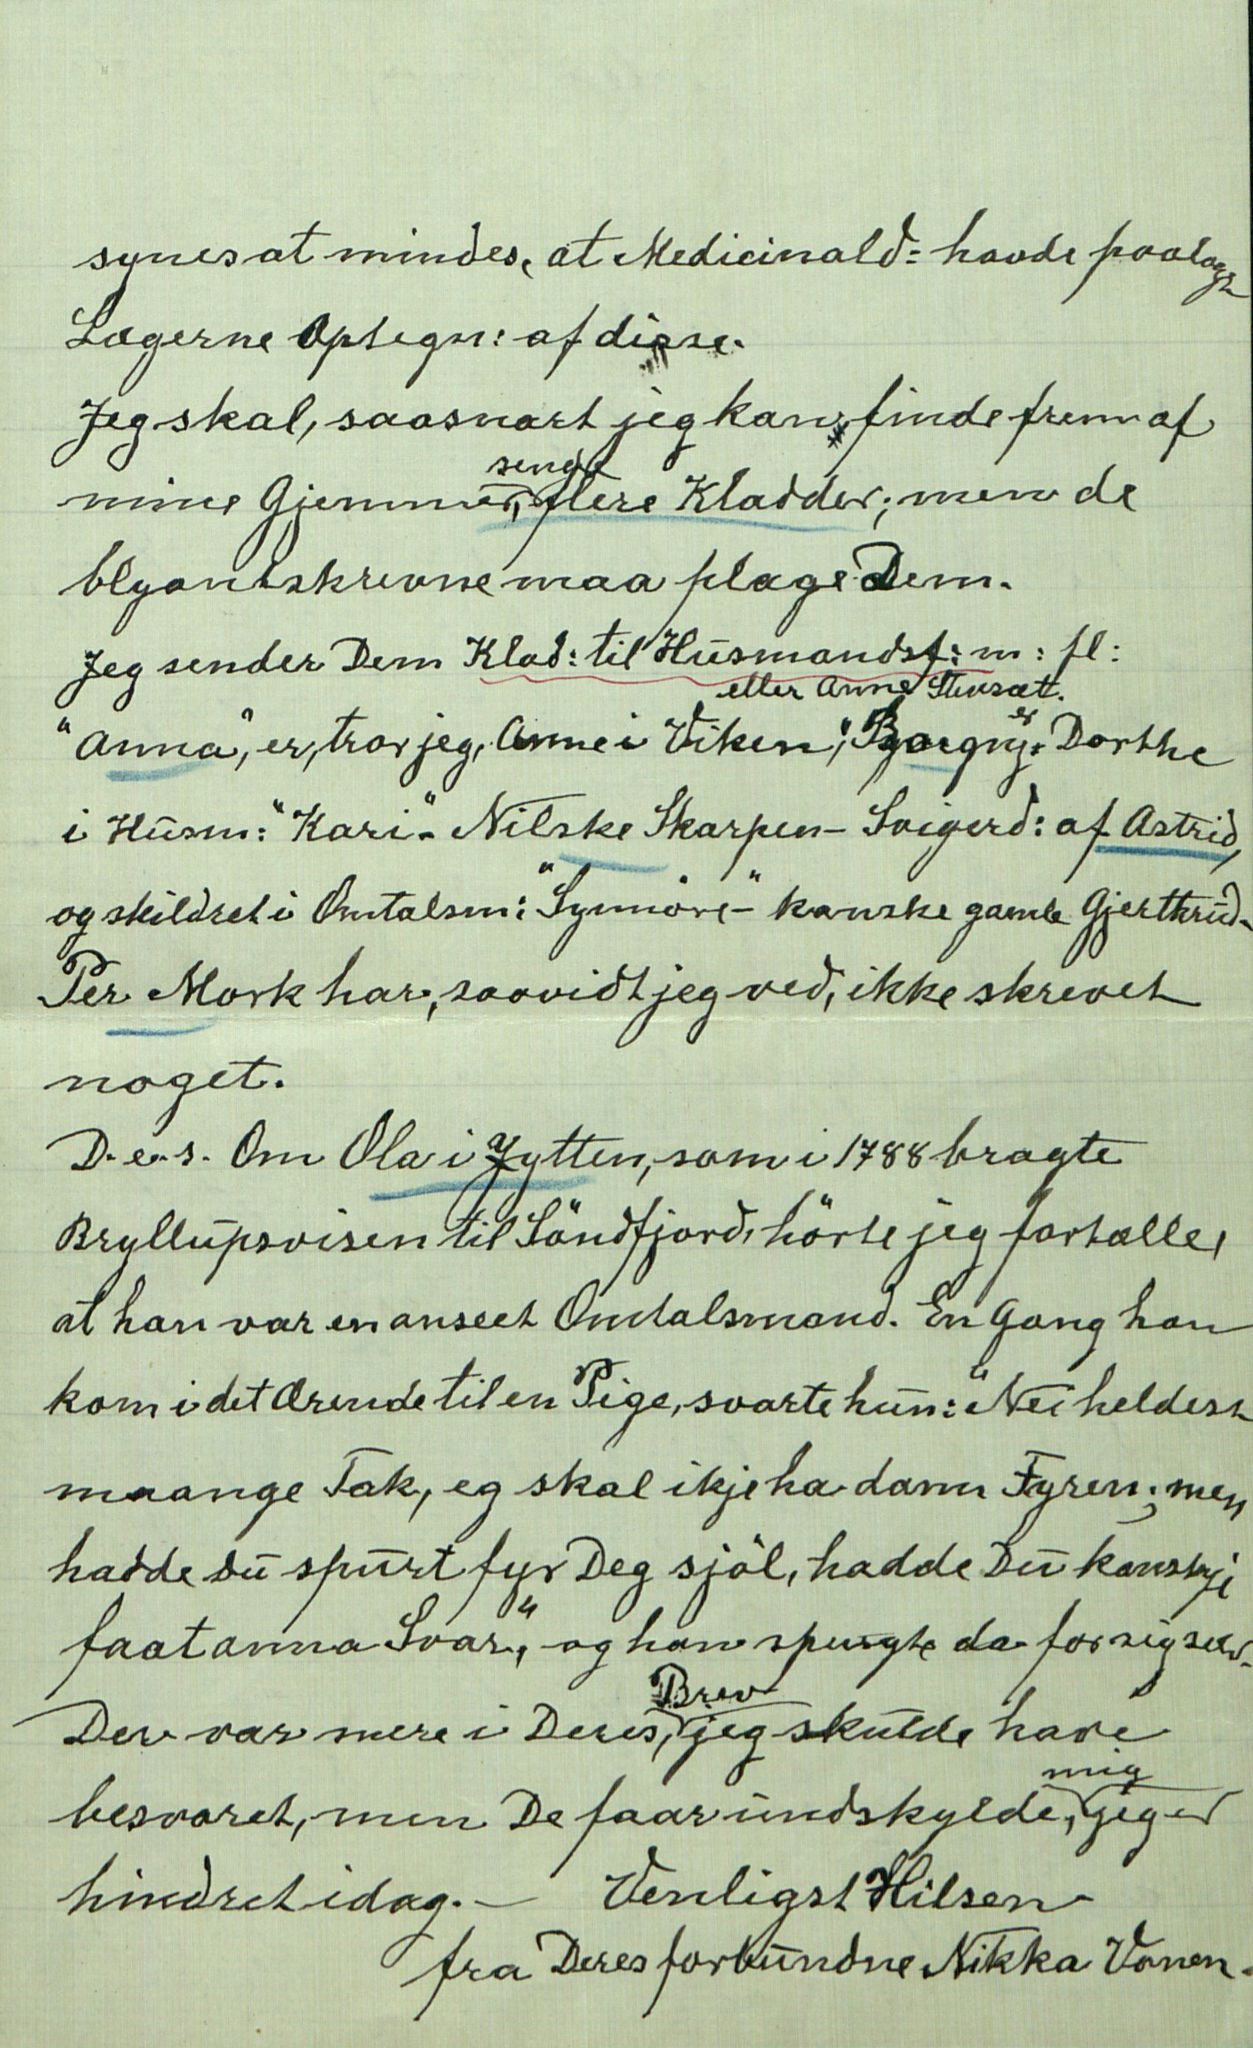 synes at mindes, at Medicinald: havde paalagt
Lægerne Optegn: af disse.
Jeg skal, saasnart jeg kan, finde frem af
mine Gjemmer, sende flere Kladder; men de
blyantskrevne maa plage Dem.
Jeg sender Dem Klad: til Husmandsf: m: fl:
eller Anne Stensæt.
"Anna", er, tror jeg, Anne i Viken; "Borgny" er Dorthe
i Husm: "Kari" - Nilske Skarpen - Svigerd: af Astrid,
og skildret i Omtalsm: "Synnöve" - kanske gamle Gjerthrud -
Per Mork har, saavidt jeg ved, ikke skrevet
noget.
D. e. s. Om Ola i Jytten, som i 1788 bragte
Bryllupsvisen til Söndfjord, hörte jeg fortælle,
at han var en anseet Omtalsmand. En Gang han
kom i det Ærende til en Pige, svarte hun: "Nei heldest
maange Tak, eg skal ikje ha dann Fyren; men
hadde du spurt fyr Deg sjöl, hadde Du kanskje
faat anna Svar," og han spurgte da for sig selv.
Der var mere i Deres Brev, jeg skulde have
besvaret, men De faar undskylde mig, jeg er
hindret idag. - Venligst Hilsen
fra Deres forbundne Nikka Vonen.